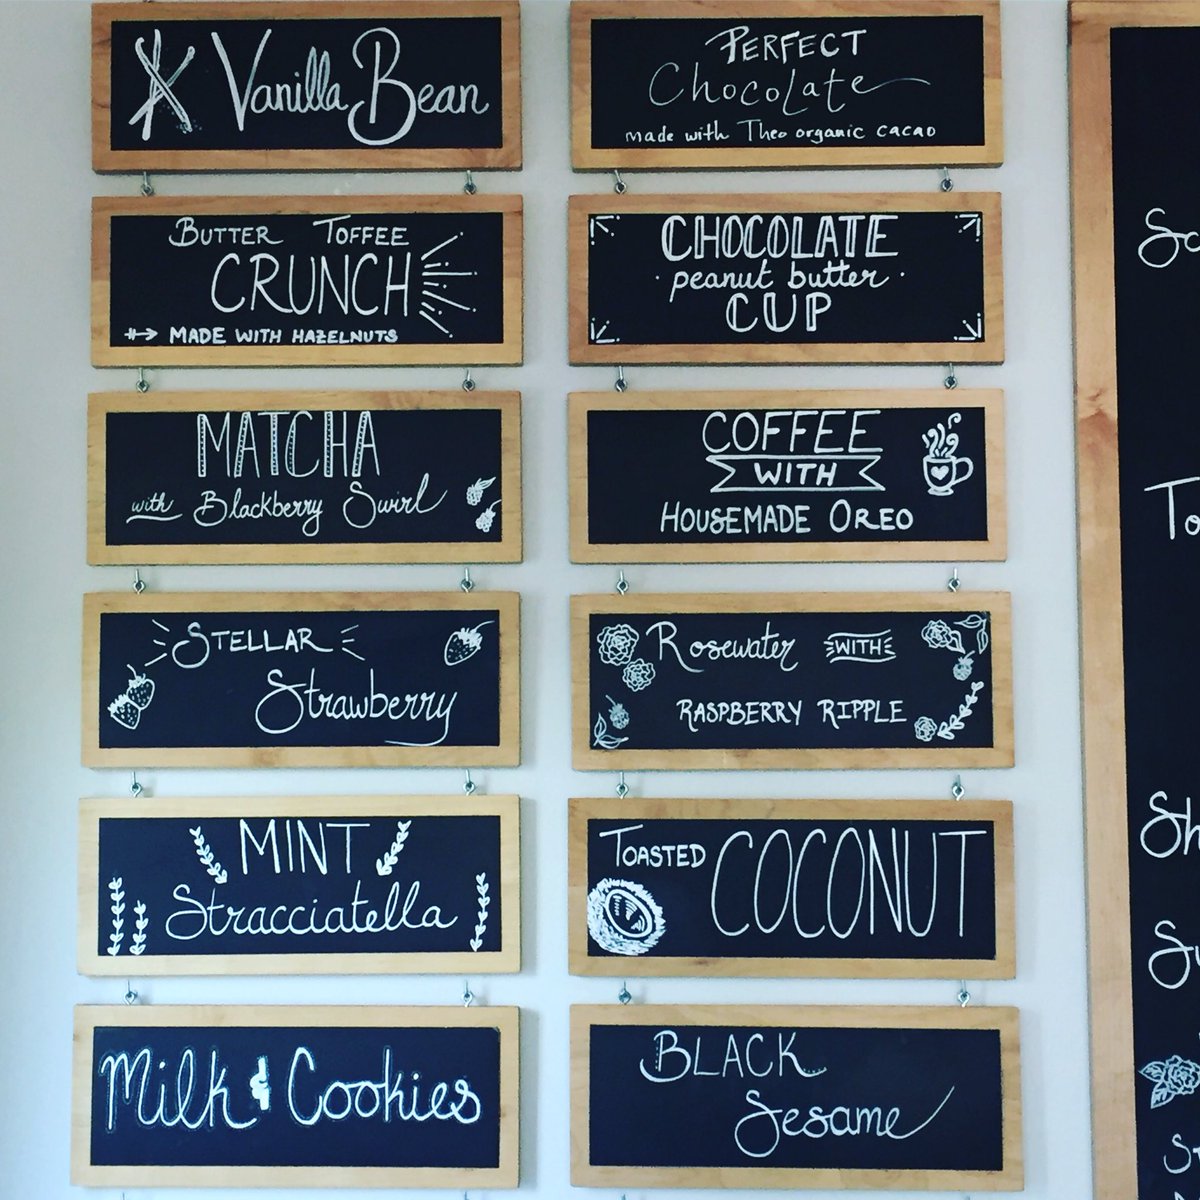 Vanilla Bean
BUTTER TOFFEE
CRUNCH
MADE WITH HAZELNUTS
MATCHA
with Blackberry Swirl
STELLAR
Strawberry
MINT
Stracciatella
Milk & Cookies
PERFECT
Chocolate
made with Theo organic cacao
CHOCOLATE
· peanut butter ·
CUP
COFFEE
WITH
HOUSEMADE OREO
Rosewater WITH
RASPBERRY RIPPLE
TOASTED COCONUT
BLACK
Sesame